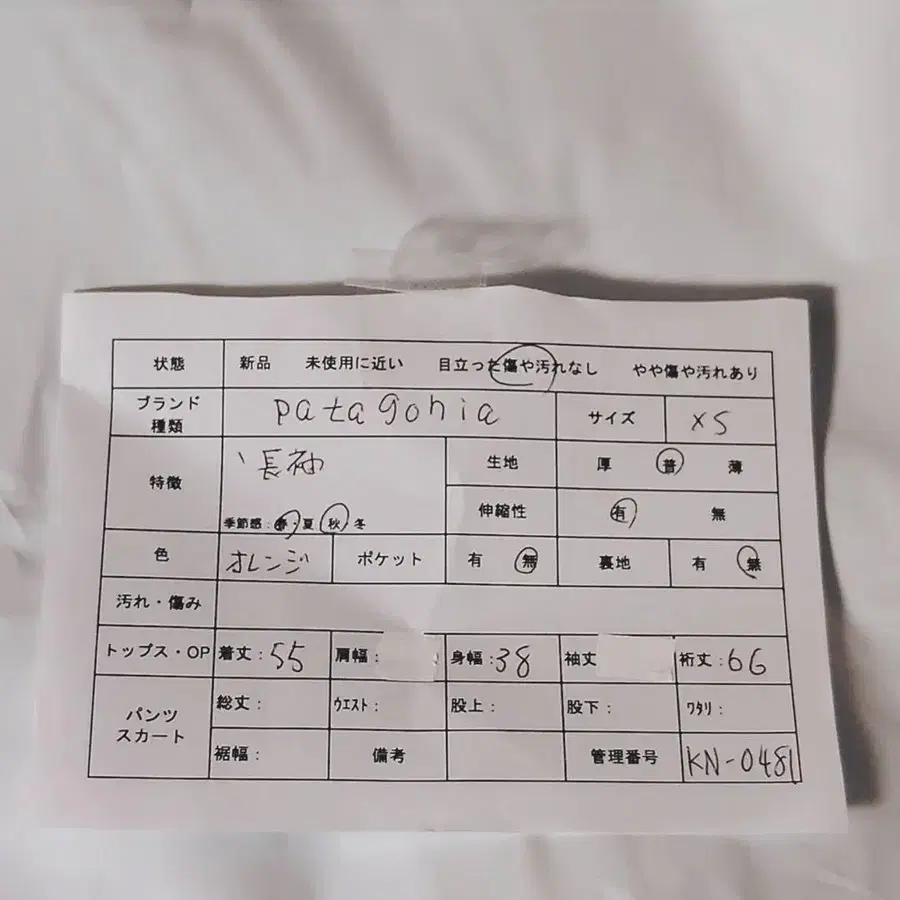 状態 新品 未使用に近い 目立った傷や汚れなし やや傷や汚れあり
ブランド 種類 patagonia サイズ XS
特徴 長袖 生地 厚 普 薄
季節感:春・夏 秋 冬 伸縮性 有 無
色 オレンジ ポケット 有 無 裏地 有 無
汚れ・傷み
トップス・OP 着丈:55 肩幅: 身幅:38 袖丈 裄丈:66
パンツ スカート 総丈: ウエスト: 股上: 股下: ワタリ:
裾幅: 備考 管理番号 KN-0481